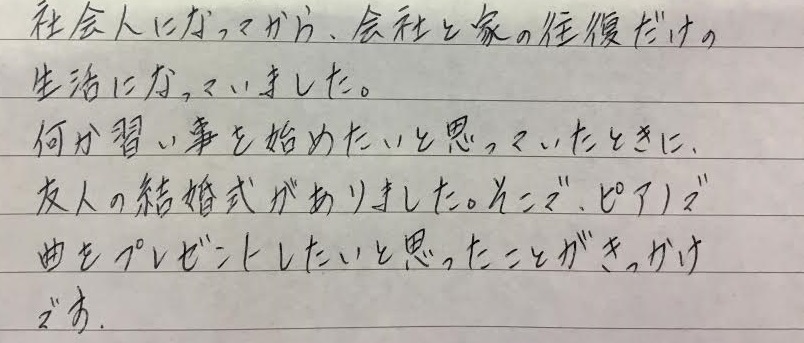 社会人になってから、会社と家の往復だけの
生活になっていました。
何か習い事を始めたいと思っていたときに、
友人の結婚式がありました。そこで、ピアノで
曲をプレゼントしたいと思ったことがきっかけ
です。